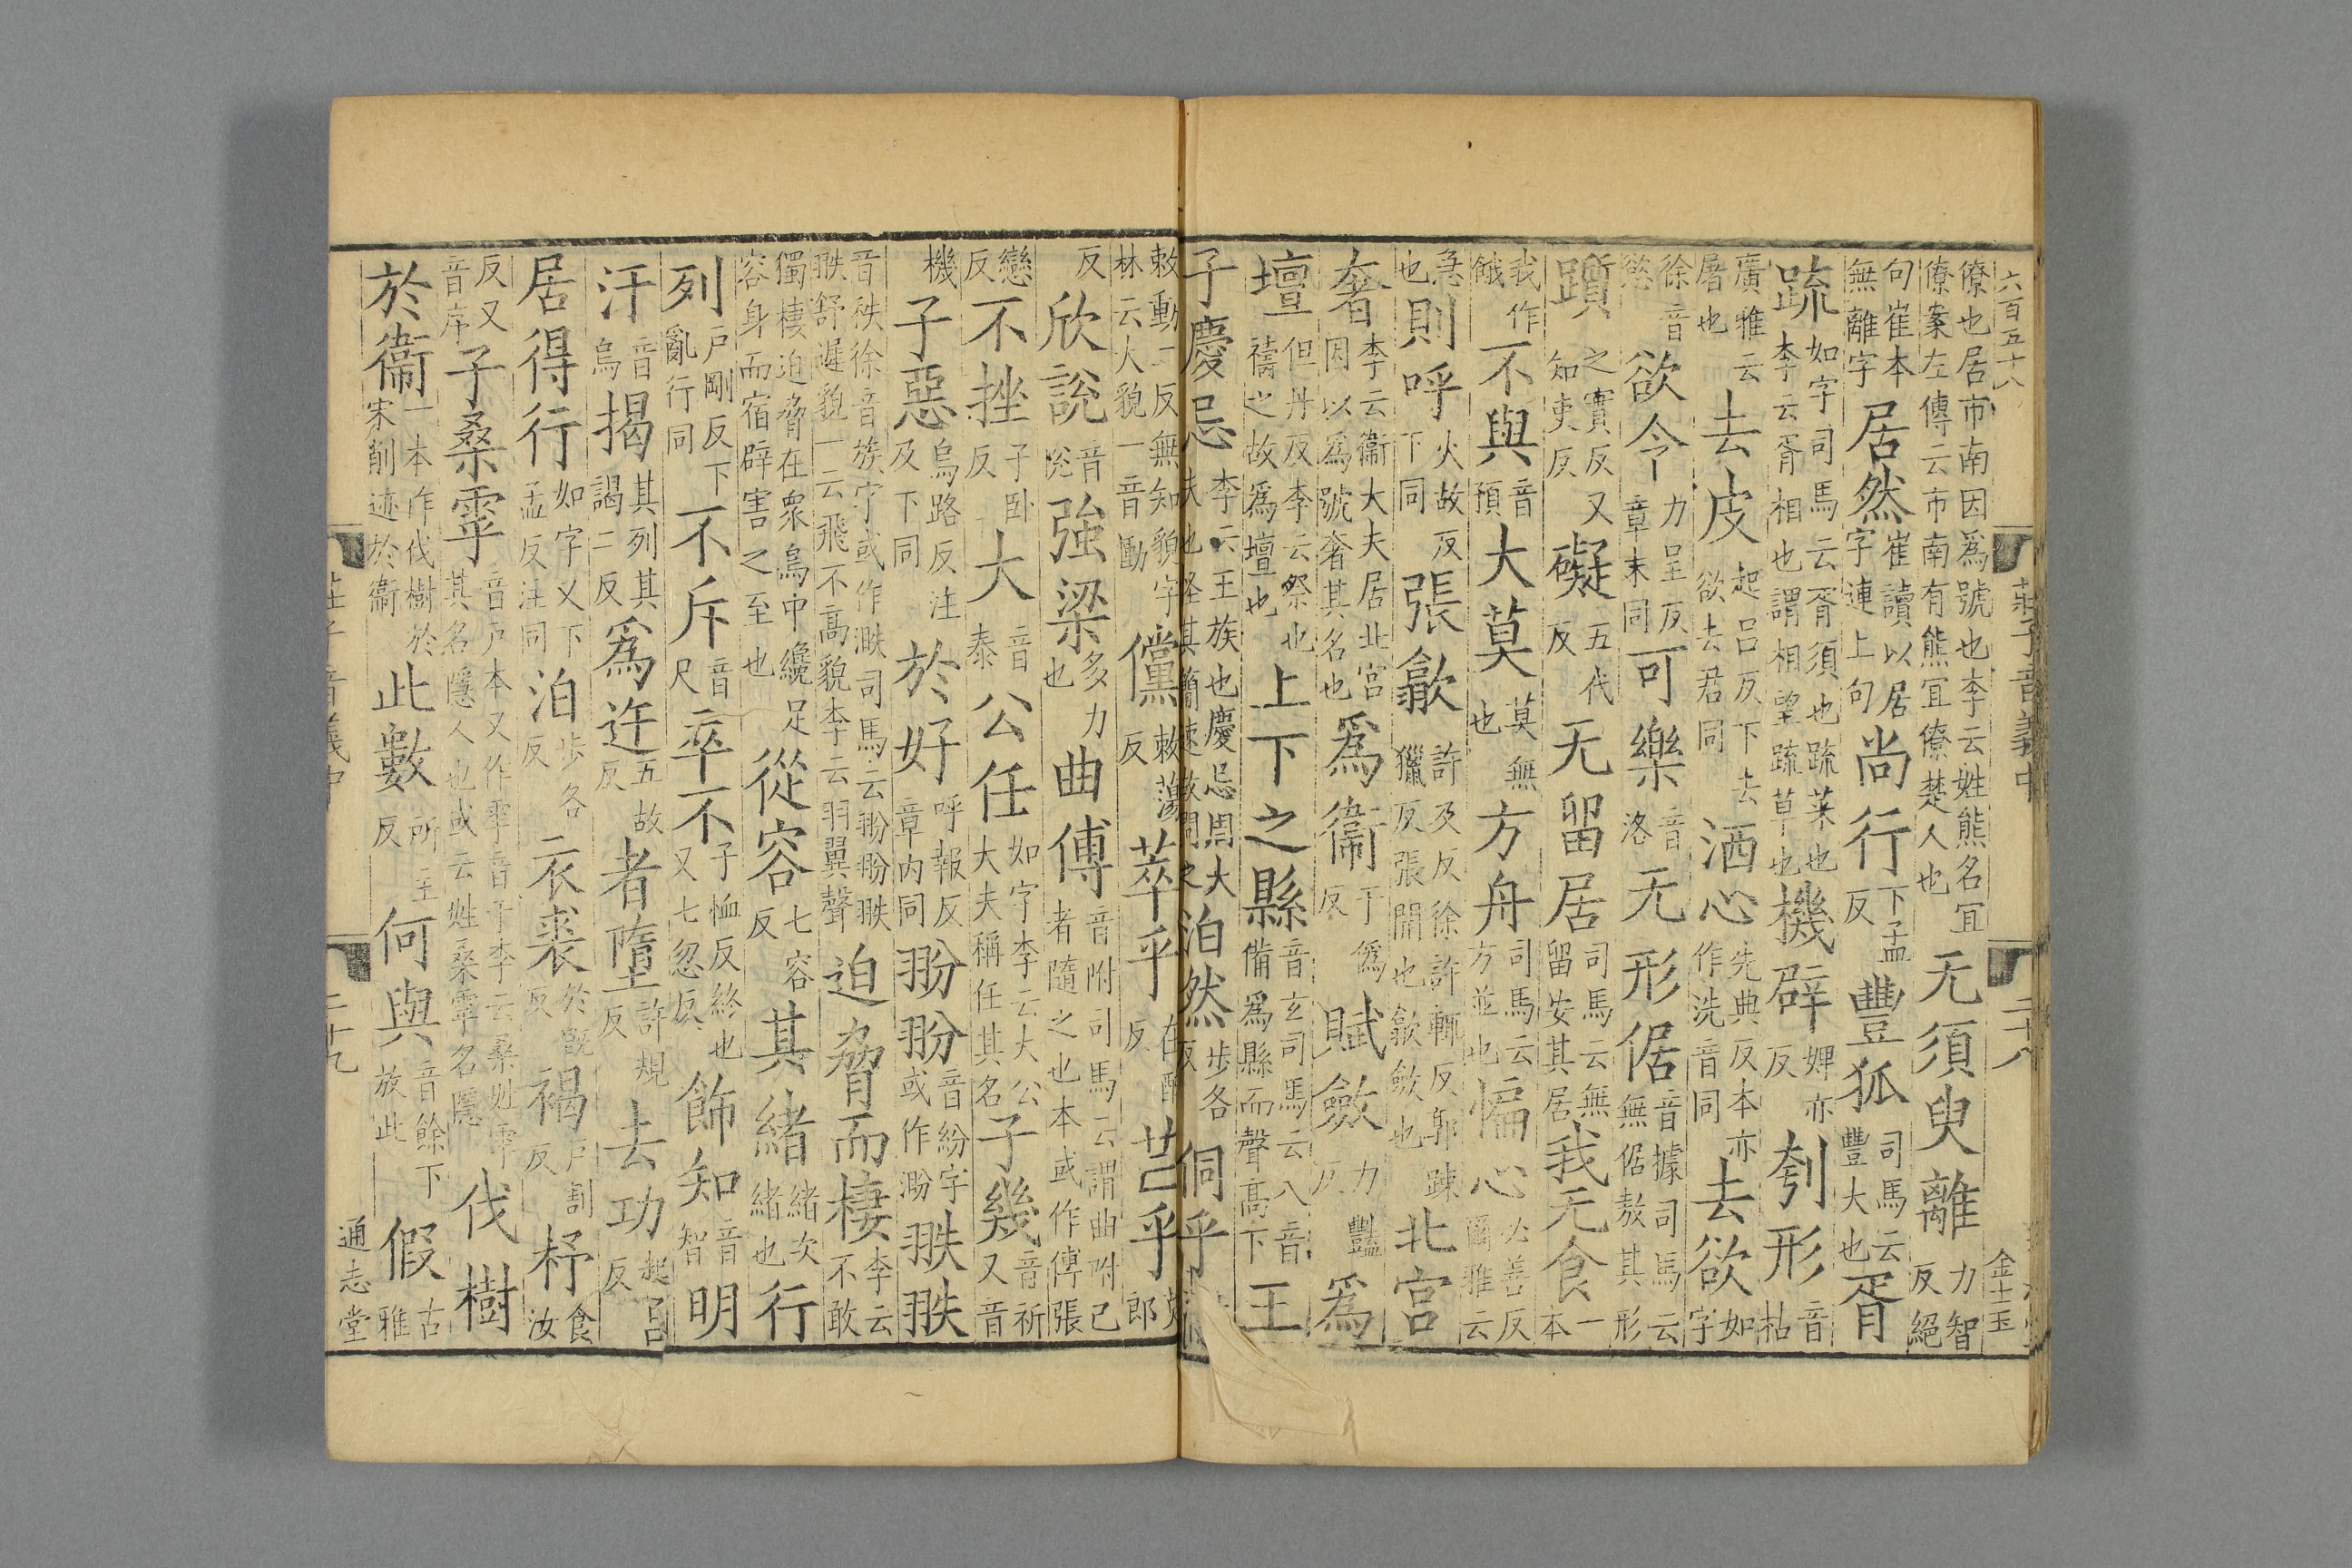 六百五十八 莊子音義中 二十八 金士玉
僚也居市南因爲號也李云姓熊名宜僚案左傳云市南有熊宜僚楚人也 无須臾離 力智反絕
句崔本無離字 居然 崔讀以居字連上句 尚行 下孟反 豐狐 司馬云豐大也 胥
疏 如字司馬云胥須也疏菜也李云胥相也謂相望疏草也 機辟 婢亦反 刳形 音枯
廣雅云屠也 去皮 起呂反下去欲去君同 洒心 先典反本亦作洗音同 去欲 如字
徐音慾 欲令 力呈反章末同 可樂 音洛 无形倨 音據司馬云無倨敖其形
躓 之實反又知吏反 礙 五代反 无留居 司馬云無留安其居 我无食 一本
我作餓 不與 音預 大莫 莫無也 方舟 司馬云方並也 惼心 必善反爾雅云
急也 則呼 火故反下同 張歙 許及反徐許輒反郭踈獵反張開也歙斂也 北宮
奢 李云衞大夫居北宮因以爲號奢其名也 爲衞 于爲反 賦斂 力豔反 爲
壇 但丹反李云祭也禱之故爲壇也 上下之縣 音玄司馬云八音備爲縣而聲高下 王
子慶忌 李云王族也慶忌周大夫也怪其簡速故問之 泊然 步各反 侗乎
敕動二反無知貌字林云大貌一音慟 儻 敕蕩反 萃乎 在醉反 芒乎 莫郎
反 欣說 音悅 強梁 多力也 曲傅 音附司馬云謂曲附己者隨之也本或作傳張
戀反 不挫 子卧反 大 音泰 公任 如字李云大公大夫稱任其名 子幾 音祈又音
機 子惡 烏路反注及下同 於好 呼報反章内同 翂翂 音紛字或作 翐翐
音秩徐音族字或作 司馬云翂翂翐翐舒遲貌一云飛不高貌李云羽翼聲 迫脅而棲 李云不敢
獨棲迫脅在衆鳥中纔足容身而宿辟害之至也 從容 七容反 其緒 緒次緒也 行
列 戶剛反下亂行同 不斥 音尺 卒不 子恤反終也又七忽反 飾知 音智 明
汙 音烏 揭 其列其謁二反 爲迕 五故反 者墮 許規反 去功 起呂反
居得行 如字又下孟反注同 泊 步各反 衣裘 於旣反 褐 戶割反 杼 食汝
反又音序 子桑雽 音戶本又作雽音于李云桑姓雽其名隱人也或云姓桑雽名隱 伐樹
於衞 一本作伐樹於宋削迹於衞 此數 所主反 何與 音餘下放此 假 古雅
莊子音義中 二十九 通志堂